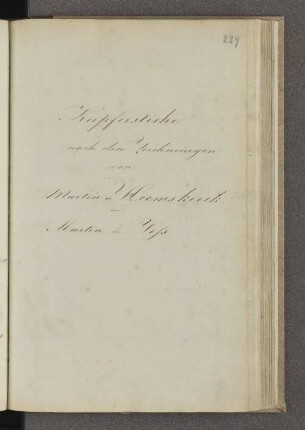 229
Kupferstiche
nach den Zeichnungen
von
Martin v Heemskerck
Marten de Voss